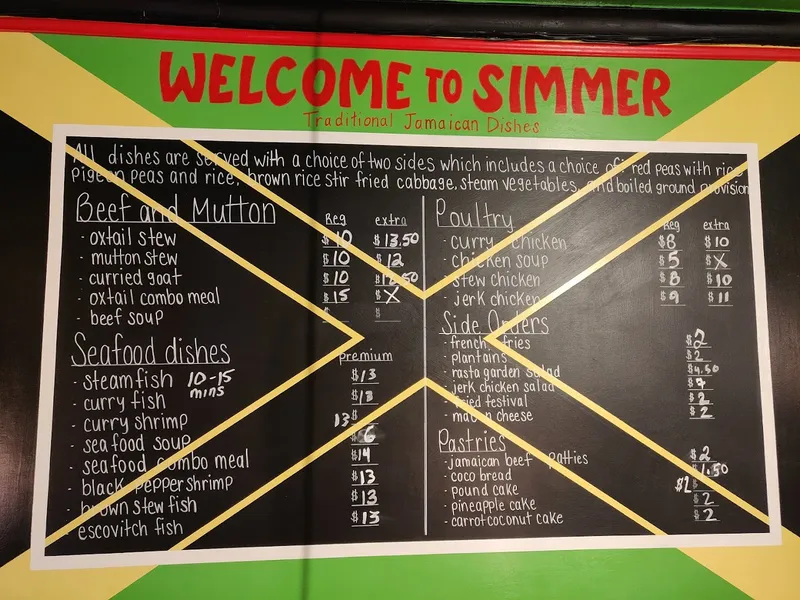 WELCOME TO SIMMER
Traditional Jamaican Dishes
All dishes are served with a choice of two sides which includes a choice of: red peas with rice,
pigeon peas and rice, brown rice stir fried cabbage, steam vegetables, and boiled ground provision
Beef and Mutton Reg extra
- oxtail stew $10 $13.50
- mutton stew $10 $12
- curried goat $10 $12.50
- oxtail combo meal $15 $X
- beef soup $ $
Seafood dishes premium
- steam fish 10-15 mins $13
- curry fish $13
- curry shrimp 13$
- sea food soup $6
- seafood combo meal $14
- black pepper shrimp $13
- brown stew fish $13
- escovitch fish $13
Poultry Reg extra
- curry chicken $8 $10
- chicken soup $5 $X
- stew chicken $8 $10
- jerk chicken $9 $11
Side Orders
- french fries $2
- plantains $2
- rasta garden salad $4.50
- jerk chicken salad $7
- fried festival $2
- mac n cheese $2
Pastries
- jamaican beef patties $2
- coco bread $1.50
- pound cake $2
- pineapple cake $2
- carrot coconut cake $2